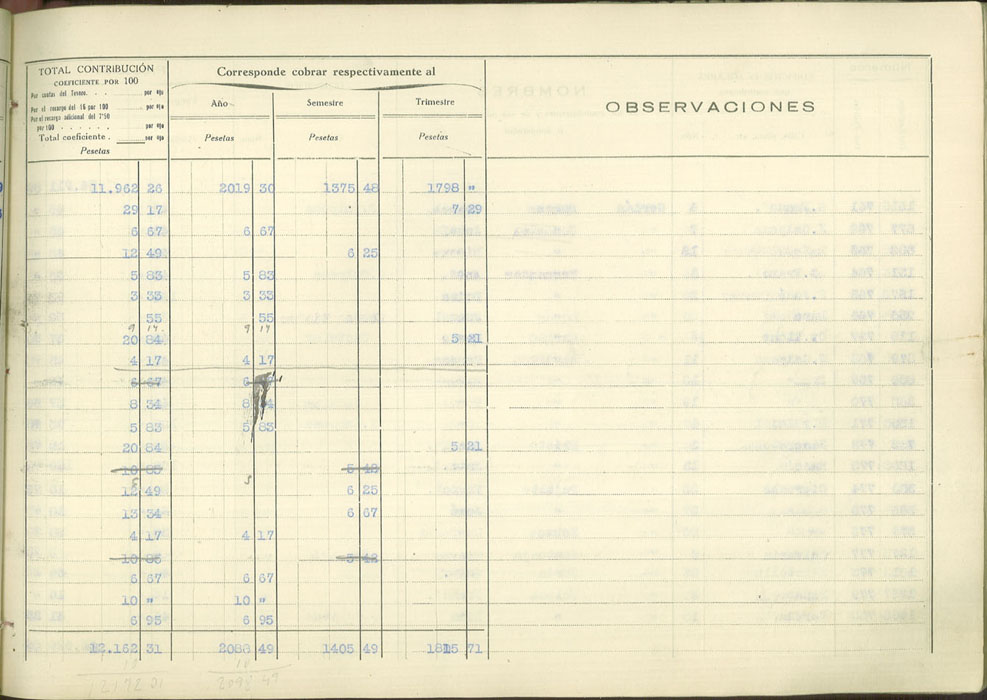 TOTAL CONTRIBUCIÓN
COEFICIENTE POR 100
Por cuotas del Tesoro. . . por 0|0
Por el recargo del 16 por 100 por 0|0
Por el recargo adicional del 7'50
por 100 . . . . . . por 0|0
Total coeficiente . por 0|0
Pesetas
Corresponde cobrar respectivamente al
Año Semestre Trimestre
Pesetas Pesetas Pesetas
OBSERVACIONES
11.962 26 2019 30 1375 48 1798 "
29 17 7 29
6 67 6 67
12 49 6 25
5 83 5 83
3 33 3 33
55 55
9 17 9 17
20 84 5 21
4 17 4 17
6 67 6
8 34 8 34
5 83 5 83
20 84 5 21
10 83 5 42
12 49 6 25
13 34 6 67
4 17 4 17
10 83 5 42
6 67 6 67
10 " 10 "
6 95 6 95
12.162 31 2088 49 1405 49 1815 71
10 10
12172 31 2098 49